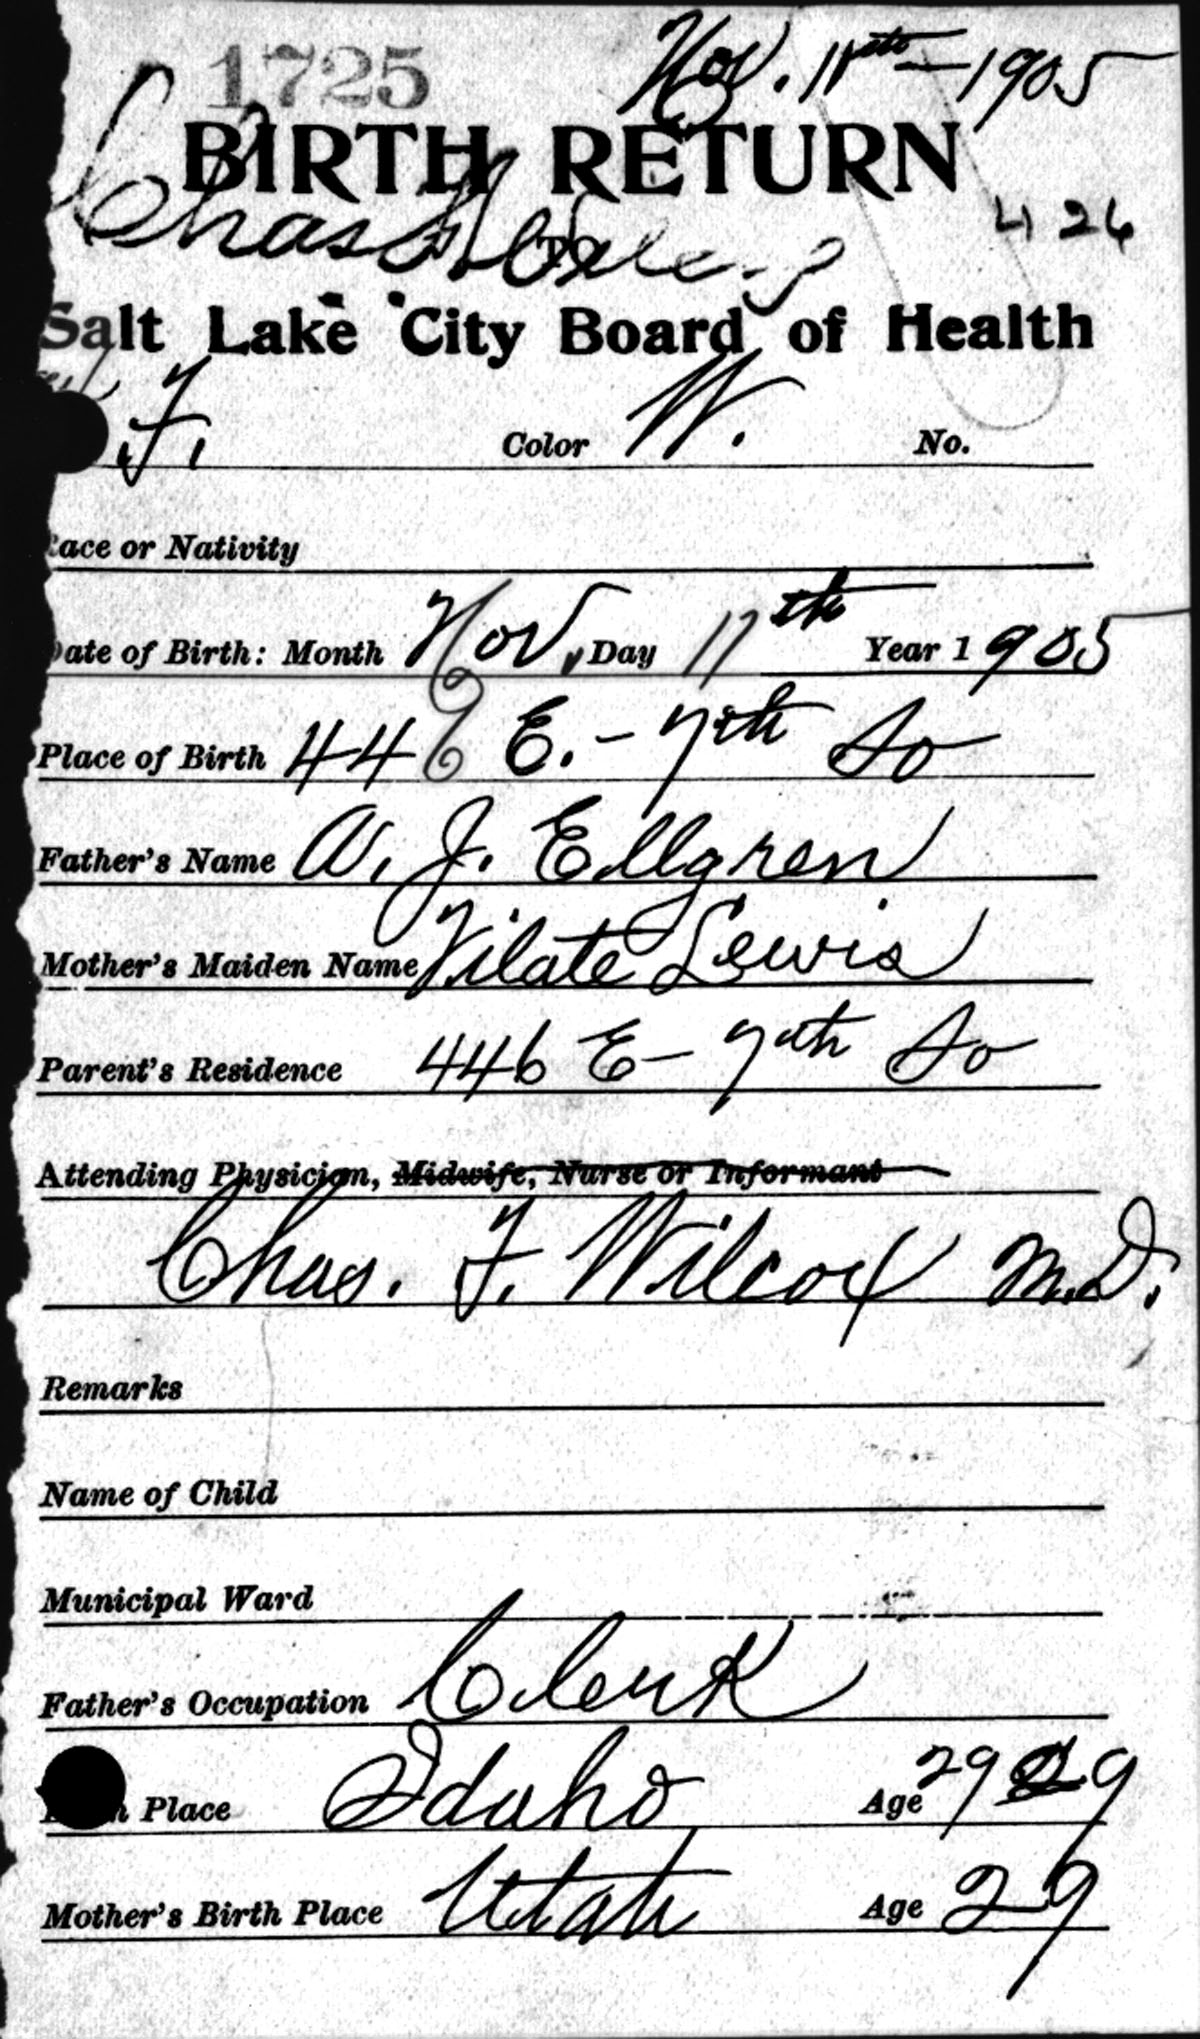 1725
Nov. 11th - 1905
BIRTH RETURN
426
Chas
TO
Salt Lake City Board of Health
F. Color W. No.
ace or Nativity
ate of Birth: Month Nov, Day 11th Year 1905
Place of Birth 446 E. - 7th So
Father's Name A. J. Ellgren
Mother's Maiden Name Vilate Lewis
Parent's Residence 446 E - 7th So
Attending Physician, Midwife, Nurse or Informant
Chas. F. Wilcox M.D.
Remarks
Name of Child
Municipal Ward
Father's Occupation Clerk
h Place Idaho Age 29 29
Mother's Birth Place Utah Age 29